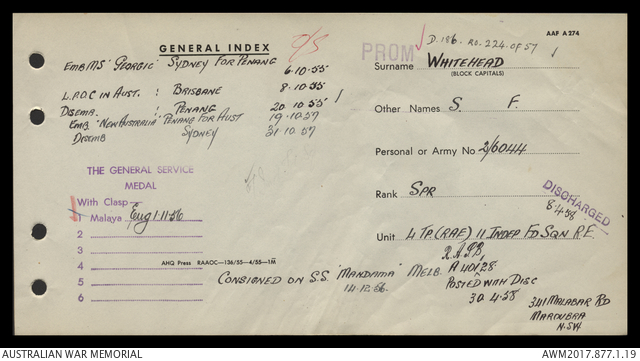 AAF A 274
GENERAL INDEX
O/S
PROM
D. 186. RO. 224 OF 57
EMB MS "GEORGIC" SYDNEY FOR PENANG
6.10.55
L.P.O.C IN AUST. : BRISBANE 8.10.55
DISEMB. : PENANG 20 10 55
EMB. "NEW AUSTRALIA" PENANG FOR AUST 19.10.57
DISEMB SYDNEY 31.10.57
Surname WHITEHEAD
(BLOCK CAPITALS)
Other Names S. F.
Personal or Army No 2/6044
Rank SPR
DISCHARGED
8.4.58
Unit 4 TP. (RAE) 11 INDEP FD SQN R.E.
THE GENERAL SERVICE
MEDAL
With Clasp
1 Malaya Eng 1.11.56
2
3
4
5
6
AHQ Press RAAOC—136/55—4/55—1M
CONSIGNED ON S.S. "MANDAMA" MELB. A 40128
14.12.56.
POSTED WITH DISC
30.4.58
341 MALABAR RD
MAROUBRA
N.S.W
AUSTRALIAN WAR MEMORIAL
AWM2017.877.1.19